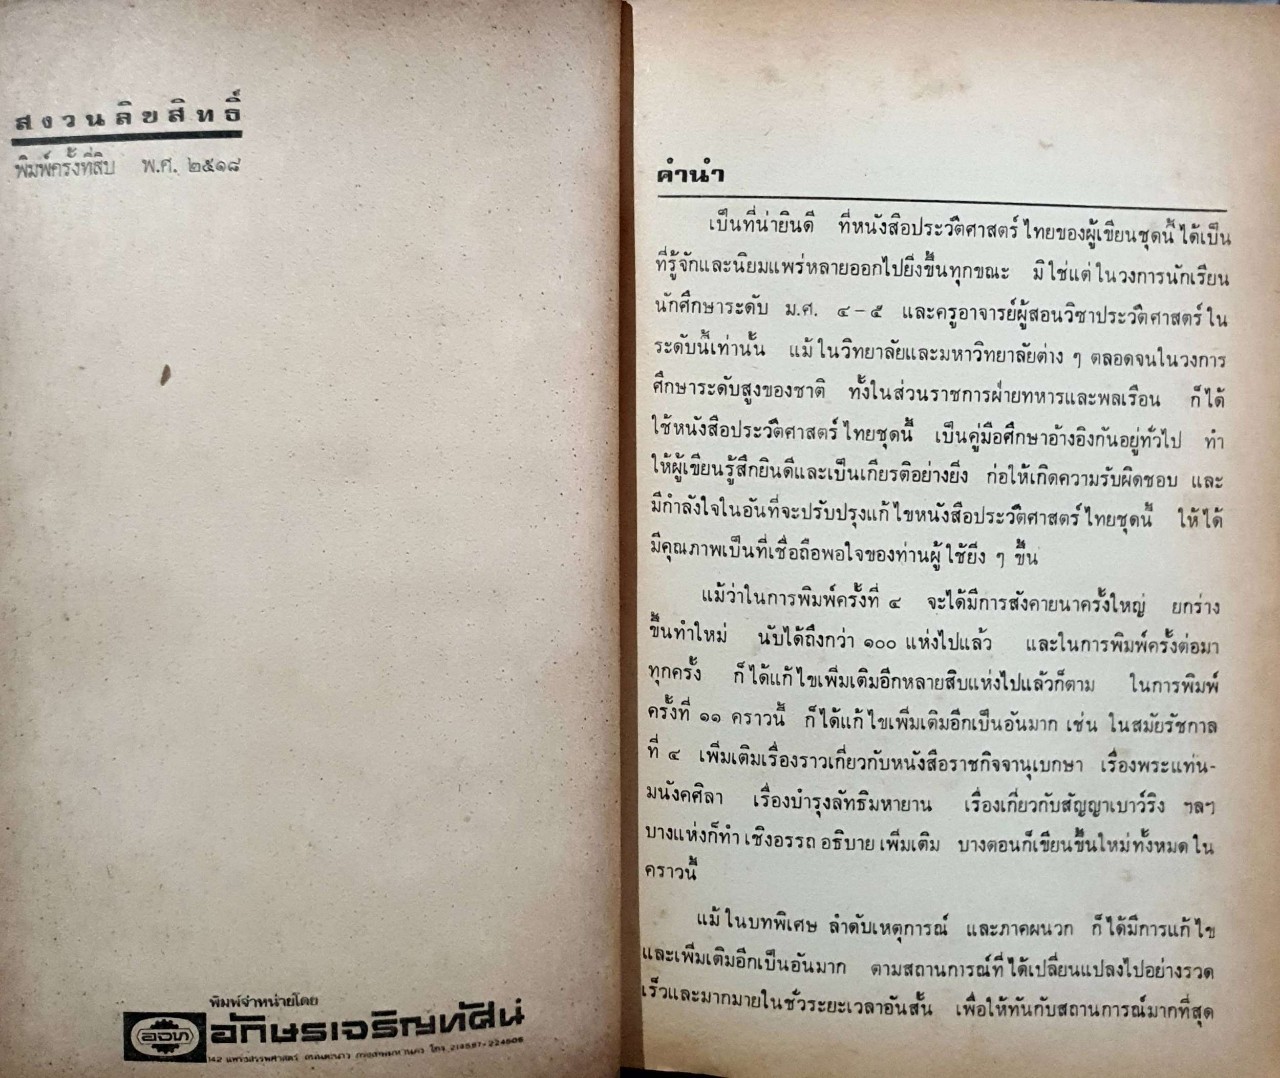 สงวนลิขสิทธิ์
พิมพ์ครั้งที่สิบ พ.ศ. ๒๕๑๘
พิมพ์จำหน่ายโดย
อจท
อักษรเจริญทัศน์
142 แพร่งสรรพศาสตร์ ถนนตะนาว กรุงเทพมหานคร โทร.
คำนำ
เป็นที่น่ายินดี ที่หนังสือประวัติศาสตร์ไทยของผู้เขียนชุดนี้ ได้เป็น
ที่รู้จักและนิยมแพร่หลายออกไปยิ่งขึ้นทุกขณะ มิใช่แต่ในวงการนักเรียน
นักศึกษาระดับ ม.ศ. ๔-๕ และครูอาจารย์ผู้สอนวิชาประวัติศาสตร์ใน
ระดับนี้เท่านั้น แม้ในวิทยาลัยและมหาวิทยาลัยต่าง ๆ ตลอดจนในวงการ
ศึกษาระดับสูงของชาติ ทั้งในส่วนราชการฝ่ายทหารและพลเรือน ก็ได้
ใช้หนังสือประวัติศาสตร์ไทยชุดนี้ เป็นคู่มือศึกษาอ้างอิงกันอยู่ทั่วไป ทำ
ให้ผู้เขียนรู้สึกยินดีและเป็นเกียรติอย่างยิ่ง ก่อให้เกิดความรับผิดชอบ และ
มีกำลังใจในอันที่จะปรับปรุงแก้ไขหนังสือประวัติศาสตร์ไทยชุดนี้ ให้ได้
มีคุณภาพเป็นที่เชื่อถือพอใจของท่านผู้ใช้ยิ่ง ๆ ขึ้น
แม้ว่าในการพิมพ์ครั้งที่ ๔ จะได้มีการสังคายนาครั้งใหญ่ ยกร่าง
ขึ้นทำใหม่ นับได้ถึงกว่า ๑๐๐ แห่งไปแล้ว และในการพิมพ์ครั้งต่อมา
ทุกครั้ง ก็ได้แก้ไขเพิ่มเติมอีกหลายสิบแห่งไปแล้วก็ตาม ในการพิมพ์
ครั้งที่ ๑๑ คราวนี้ ก็ได้แก้ไขเพิ่มเติมอีกเป็นอันมาก เช่น ในสมัยรัชกาล
ที่ ๔ เพิ่มเติมเรื่องราวเกี่ยวกับหนังสือราชกิจจานุเบกษา เรื่องพระแท่น-
มนังคศิลา เรื่องบำรุงลัทธิมหายาน เรื่องเกี่ยวกับสัญญาเบาว์ริง ฯลฯ
บางแห่งก็ทำเชิงอรรถอธิบายเพิ่มเติม บางตอนก็เขียนขึ้นใหม่ทั้งหมดใน
คราวนี้
แม้ในบทพิเศษ ลำดับเหตุการณ์ และภาคผนวก ก็ได้มีการแก้ไข
และเพิ่มเติมอีกเป็นอันมาก ตามสถานการณ์ที่ได้เปลี่ยนแปลงไปอย่างรวด
เร็วและมากมายในชั่วระยะเวลาอันสั้น เพื่อให้ทันกับสถานการณ์มากที่สุด